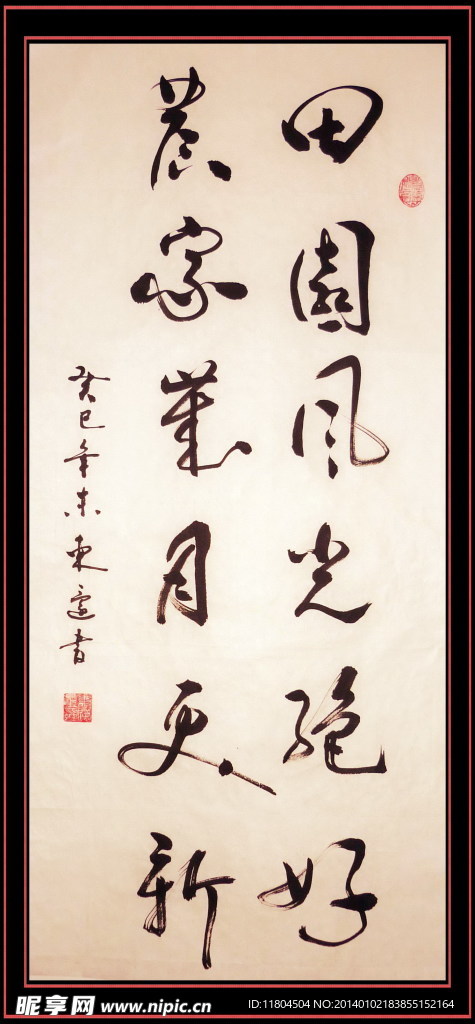 田園风光絕好
農家歲月更新
癸巳年末東書
昵享网 www.nipic.cn
ID:11804504 NO:20140102183855152164